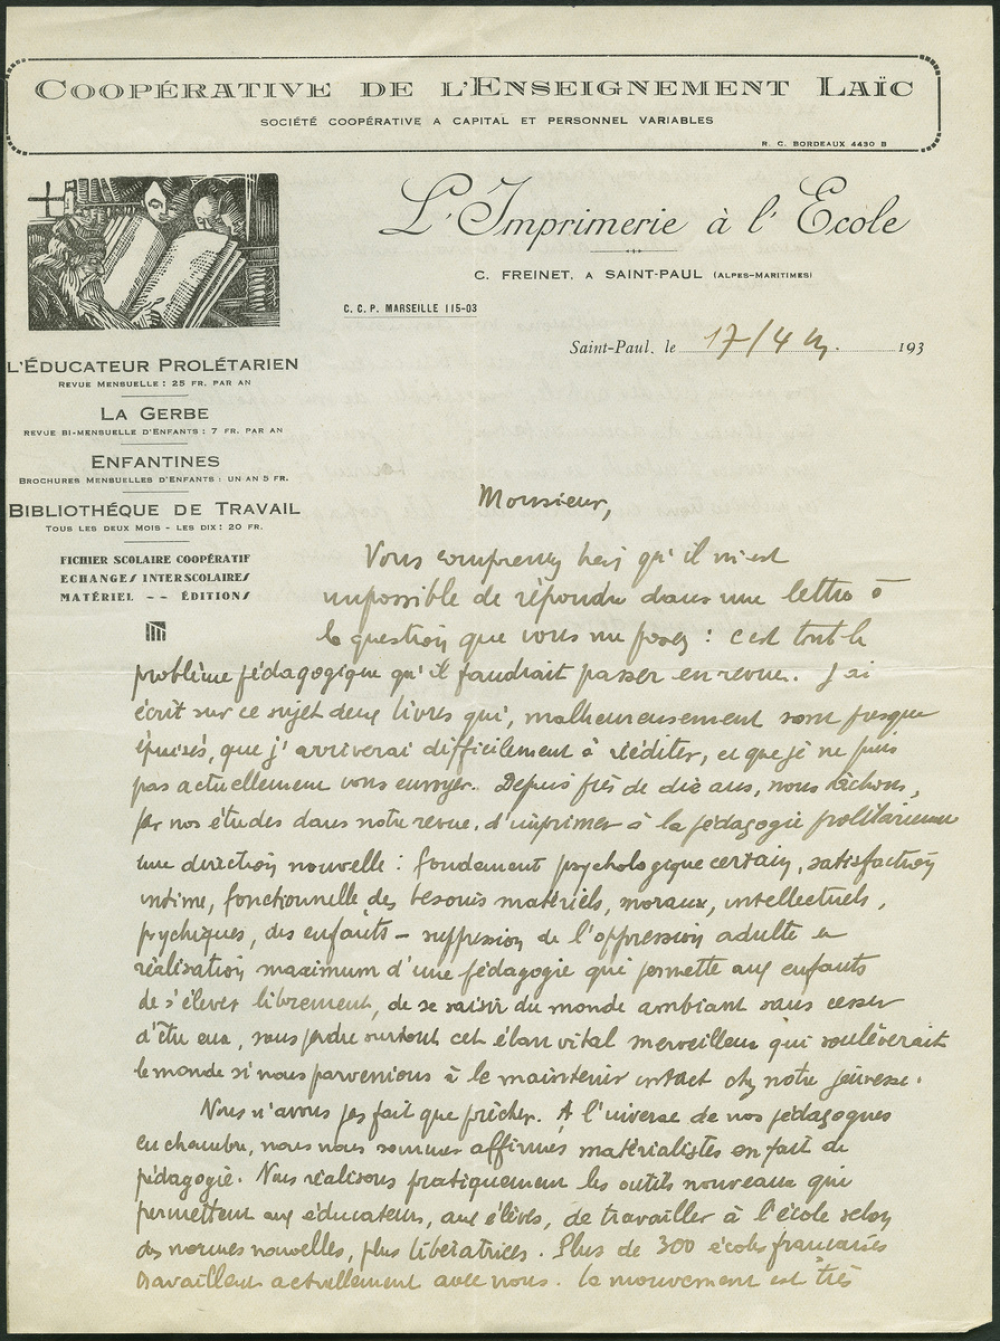 COOPÉRATIVE DE L'ENSEIGNEMENT LAÏC
SOCIÉTÉ COOPÉRATIVE A CAPITAL ET PERSONNEL VARIABLES
R. C. BORDEAUX 4430 B
L'Imprimerie à l'Ecole
C. FREINET, A SAINT-PAUL (ALPES-MARITIMES)
C. C. P. MARSEILLE 115-03
Saint-Paul, le 17/4 193
L'ÉDUCATEUR PROLÉTARIEN
REVUE MENSUELLE : 25 FR. PAR AN
LA GERBE
REVUE BI-MENSUELLE D'ENFANTS : 7 FR. PAR AN
ENFANTINES
BROCHURES MENSUELLES D'ENFANTS : UN AN 5 FR.
BIBLIOTHÉQUE DE TRAVAIL
TOUS LES DEUX MOIS - LES DIX : 20 FR.
FICHIER SCOLAIRE COOPÉRATIF
ECHANGES INTERSCOLAIRES
MATÉRIEL -- ÉDITIONS
Monsieur,
Vous comprenez bien qu'il m'est
impossible de répondre dans une lettre à
la question que vous me posez : c'est tout le
problème pédagogique qu'il faudrait passer en revue. J'ai
écrit sur ce sujet deux livres qui, malheureusement sont presque
épuisés, que j'arriverai difficilement à rééditer, et que je ne puis
pas actuellement vous envoyer. Depuis près de dix ans, nous tâchons,
par nos études dans notre revue, d'imprimer à la pédagogie prolétarienne
une direction nouvelle : fondement psychologique certain, satisfaction
intime, fonctionnelle des besoins matériels, moraux, intellectuels,
psychiques, des enfants - suppression de l'oppression adulte et
réalisation maximum d'une pédagogie qui permette aux enfants
de s'élever librement, de se saisir du monde ambiant sans cesser
d'être eux, sans perdre surtout cet élan vital merveilleux qui soulèverait
le monde si nous parvenions à le maintenir intact chez notre jeunesse.
Nous n'avons pas fait que prêcher. A l'inverse de nos pédagogues
en chambre, nous nous sommes affirmés matérialistes en fait de
pédagogie. Nous réalisons pratiquement les outils nouveaux qui
permettent aux éducateurs, aux élèves, de travailler à l'école selon
des normes nouvelles, plus libératrices. Plus de 300 écoles françaises
travaillent actuellement avec nous. Le mouvement est très